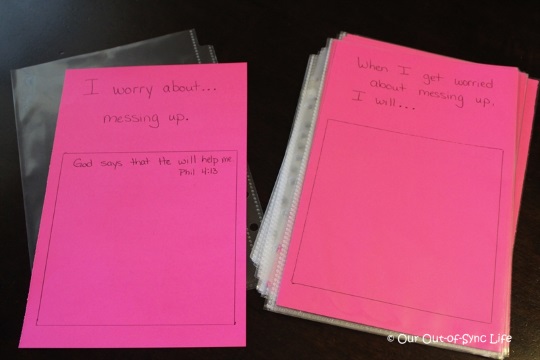 I worry about...
messing up.
God says that He will help me.
Phil 4:13
When I get worried
about messing up.
I will...
© Our Out-of-Sync Life